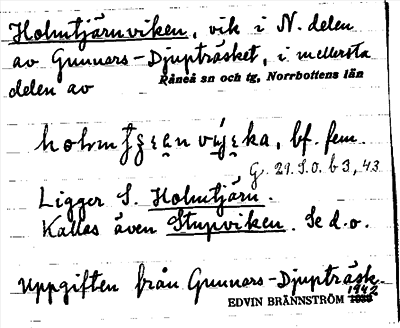 Holmtjärnviken, vik i N. delen
av Gunnars-Djupträsket, i mellersta
Råneå sn och tg, Norrbottens län
delen av
holm
ka, bf. fem.
G. 21. S.O. b 3, 43
Ligger S. Holmtjärn.
Kallas även Stupviken. Se d.o.
Uppgiften från Gunnars-Djupträsk.
1942
EDVIN BRÄNNSTRÖM